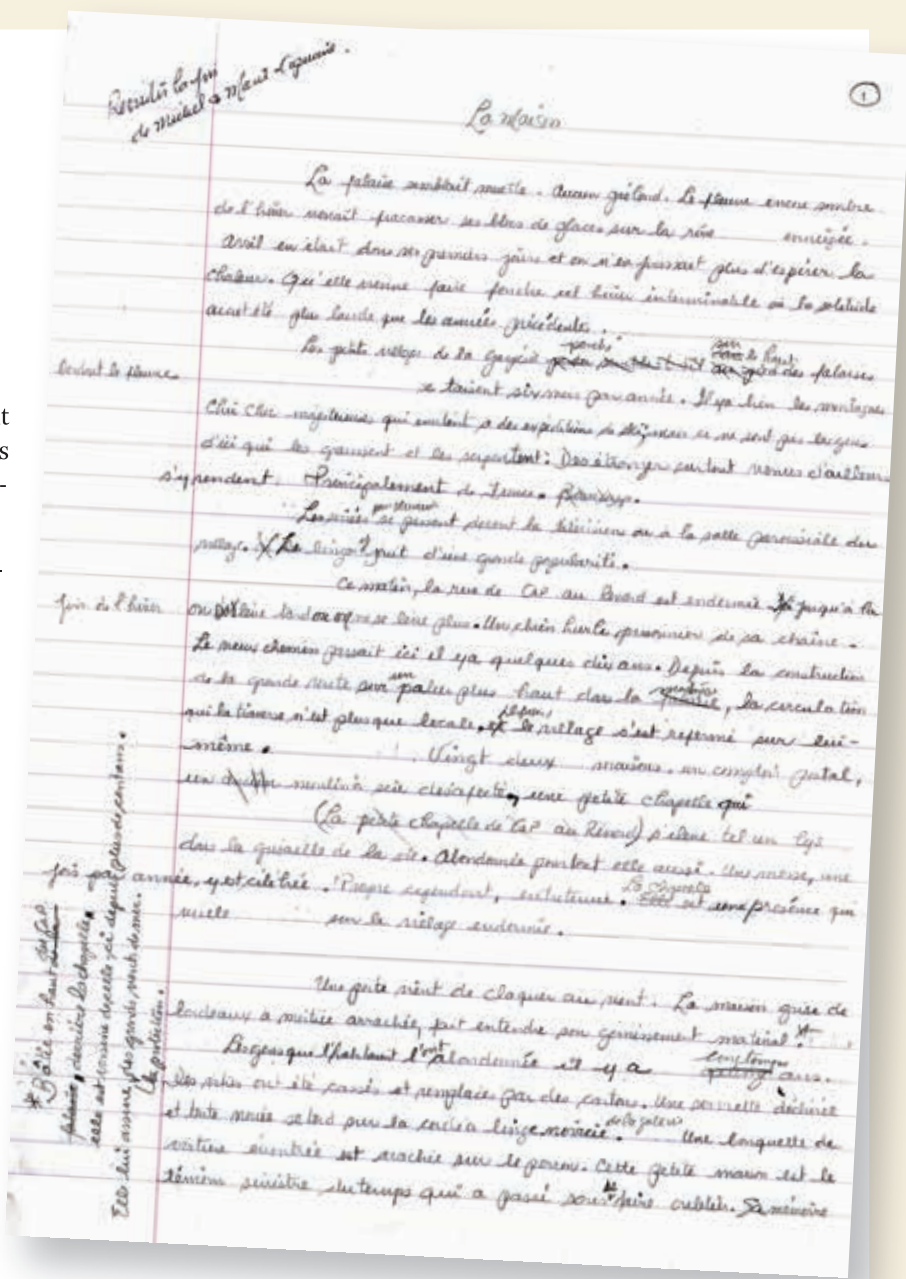 t
s
-
-
de Michel
1
La Maison
La falaise semblait muette. Aucun goéland. Le fleuve encore sombre
de l'hiver venait fracasser ses blocs de glaces sur la rive enneigée.
Avril en était dans ses premiers jours et on n'en pouvait plus d'espérer la
chaleur. Qu'elle vienne faire fondre cet hiver interminable où la solitude
avait été plus lourde que les années précédentes.
Les petits villages de la Gaspésie perchés sur le haut des falaises
bordant le fleuve
se taisent six mois par année. Il y a bien les montagnes
Chic Choc majestueuses qui invitent à des expéditions de ski, mais ce ne sont pas les gens
d'ici qui les gravissent et les serpentent. Des étranger surtout venus d'ailleurs
s'y rendent. Principalement de France.
Les soirées se passent devant la télévision ou à la salle paroissiale du
village. Le bingo y jouit d'une grande popularité.
Ce matin, la rue de Cap au Renard est endormie jusqu'à la
fin de l'hiver
on ne se lève plus. Un chien hurle, prisonnier de sa chaîne.
Le vieux chemin passait ici il y a quelques dix ans. Depuis la construction
de la grande route un palier plus haut dans la montagne, la circulation
qui la traverse n'est plus que locale, le village s'est refermé sur lui-
même. Vingt deux maisons, un comptoir postal,
un moulin à scie désaffecté, une petite chapelle qui
(La petite chapelle de Cap au Renard) s'élève tel un lys
dans la grisaille de la vie. Abandonnée pourtant elle aussi. Une messe, une
fois par année, y est célébrée. Propre cependant, entretenue. La chapelle est une présence qui
veille sur le village endormie.
Une porte vient de claquer au vent. La maison grise de
bardeaux à moitié arrachée, fait entendre son gémissement matinal.
Les gens qui l'habitent l'ont abandonnée il y a longtemps
Les vitres ont été cassés et remplacés par des cartons. Une serviette déchirée
et toute mouillée se tord sur la corde à linge noircie de la galerie. Une banquette de
voiture éventrée est crachée sur le perron. Cette petite maison est le
témoin sinistre du temps qui a passé sans se faire oublier. Sa mémoire
* Bâtie en haut du Cap
derrière la chapelle,
elle est comme depuis plus de cent ans.
Elle lui assure, des grands vents de mer,
la protection.